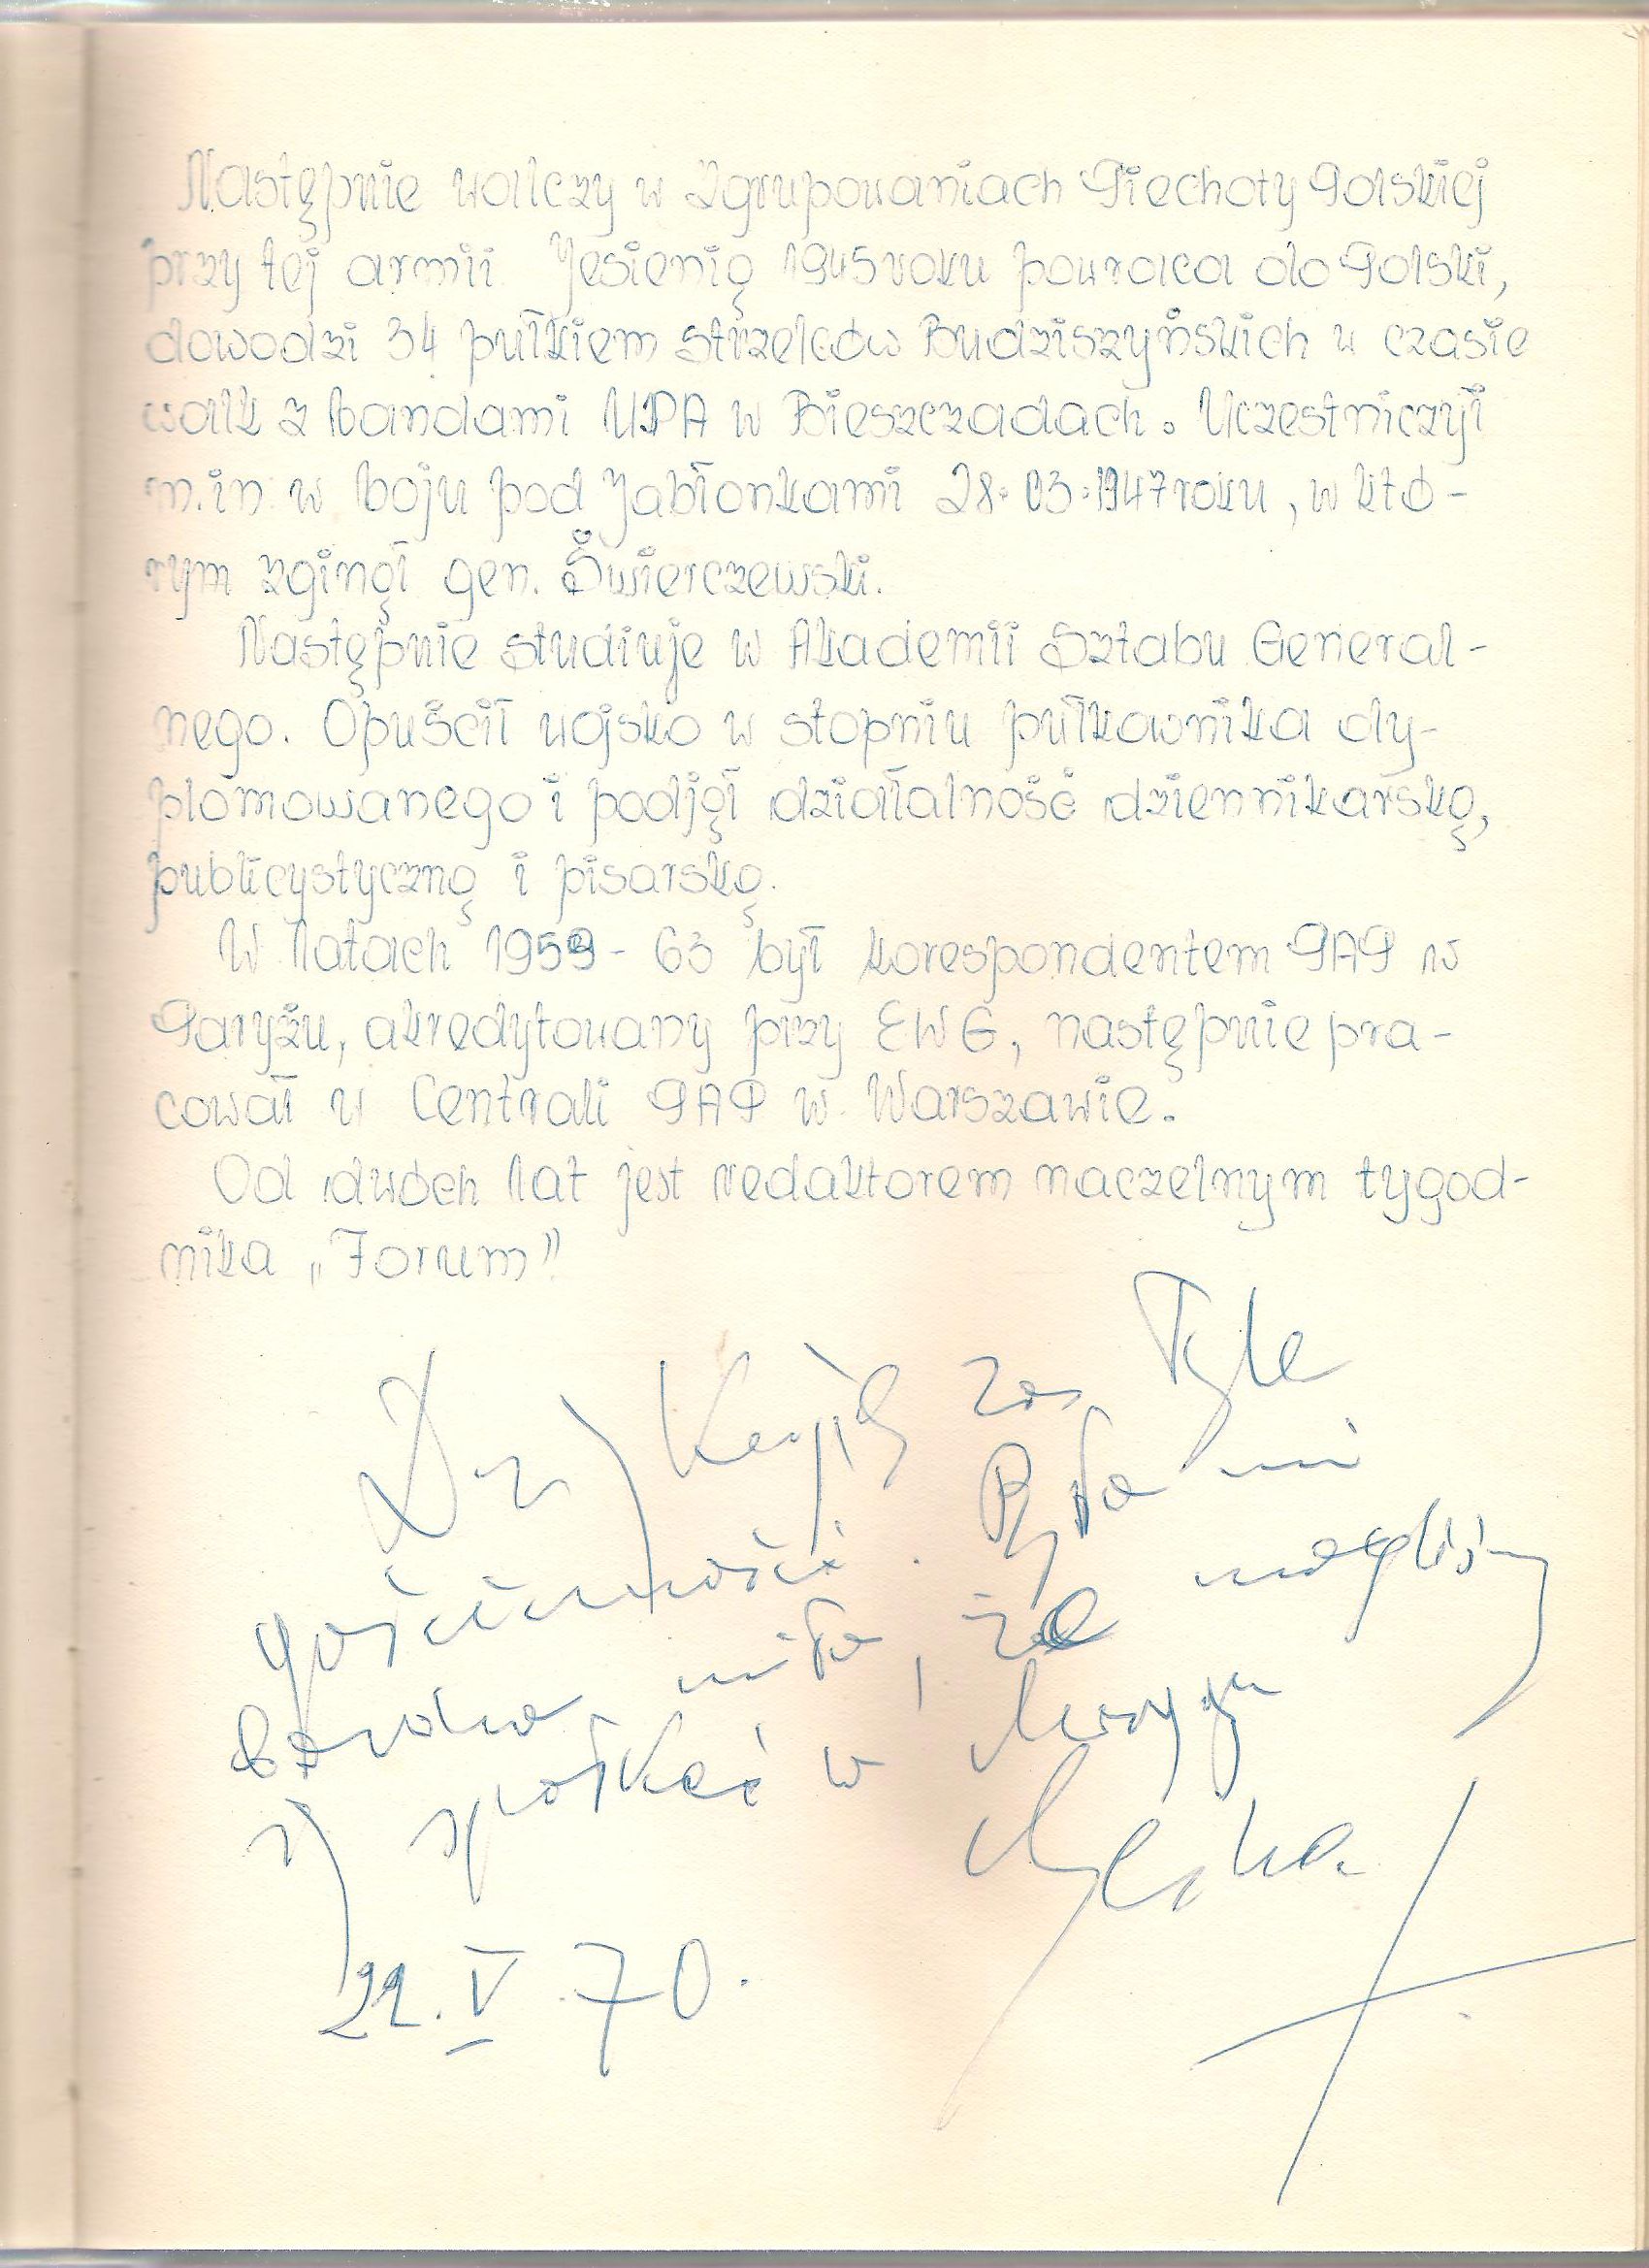 Następnie walczy w Zgrupowaniach Piechoty Polskiej
przy tej armii Jesienią 1945 roku powraca do Polski,
dowodzi 34 pułkiem strzelców Budziszyńskich w czasie
walk z bandami UPA w Bieszczadach. Uczestniczył
m.in. w boju pod Jabłonkami 28.03.1947 roku, w któ-
rym zginął gen. Świerczewski.
Następnie studiuje w Akademii Sztabu General-
nego. Opuścił wojsko w stopniu pułkownika dy-
plomowanego i podjął działalność dziennikarską,
publicystyczną i pisarską.
W latach 1959-63 był korespondentem PAP w
Paryżu, akredytowany przy EWG, następnie pra-
cował w Centrali PAP w Warszawie.
Od dwóch lat jest redaktorem naczelnym tygod-
nika „Forum"
za Tyle
gościnności. Było mi
bardzo miło, że mogliśmy
spotkać w
22.V.70.